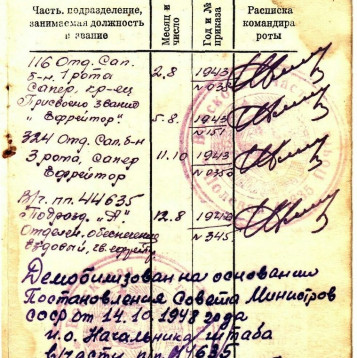 Часть, подразделение, занимаемая должность и звание
Месяц и число
Год и № приказа
Расписка командира роты
116 Отд. Сап.
б-н. 1 рота
Сапер кр-ец
2.8
1943
№035
Присвоено звание
"Ефрейтор"
5.8
1943
№151
324 Отд. Сап. б-н
3 рота, сапер
Ефрейтор
11.10
1943
В/ч пп. 44635
"А"
Отделен. обеспечения
ездовый, гв. ефрейтр
12.8
№345
Демобилизован на основании
Постановления Совета Министров
СССР от 14.10.1948 года
и.о. Начальника штаба
в/части пп. 44635